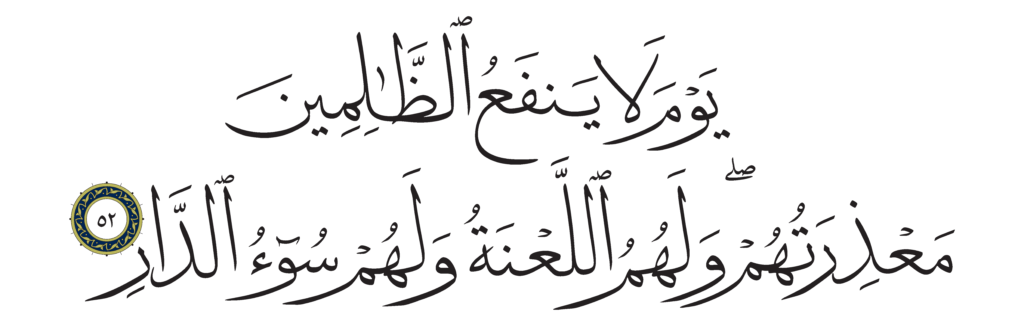 يَوْمَ لَا يَنفَعُ ٱلظَّـٰلِمِينَ
مَعْذِرَتُهُمْ ۖ وَلَهُمُ ٱللَّعْنَةُ وَلَهُمْ سُوٓءُ ٱلدَّارِ ٥٢